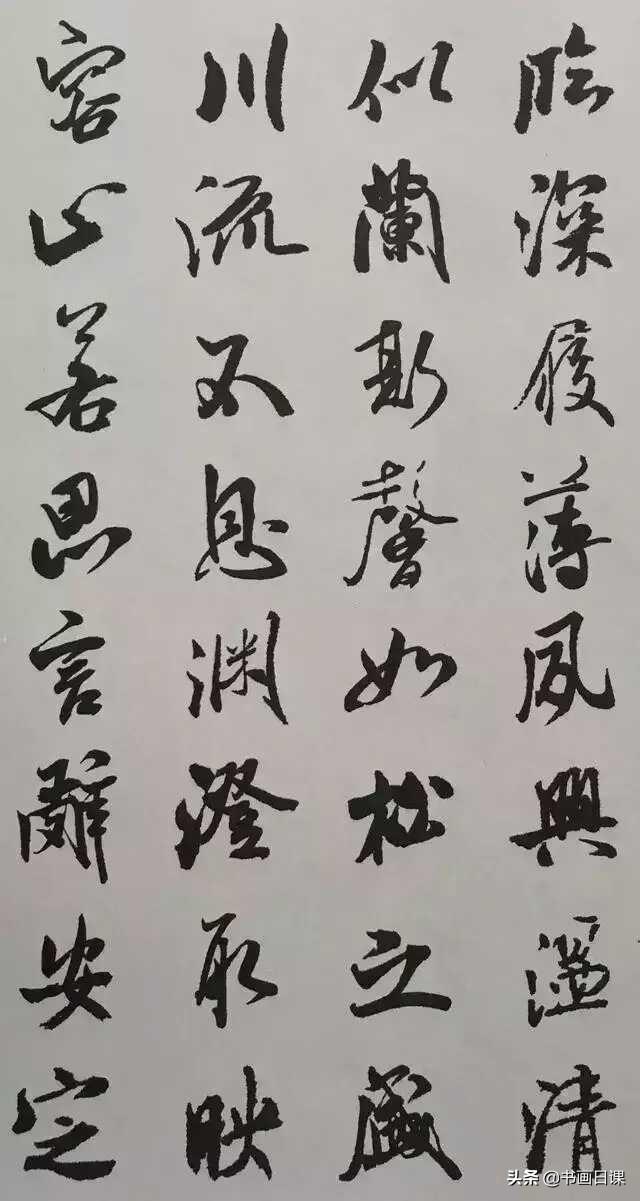 臨深履薄夙興溫清
似蘭斯馨如松之盛
川流不息渊澄取映
容止若思言辭安定
头条 @书画日课